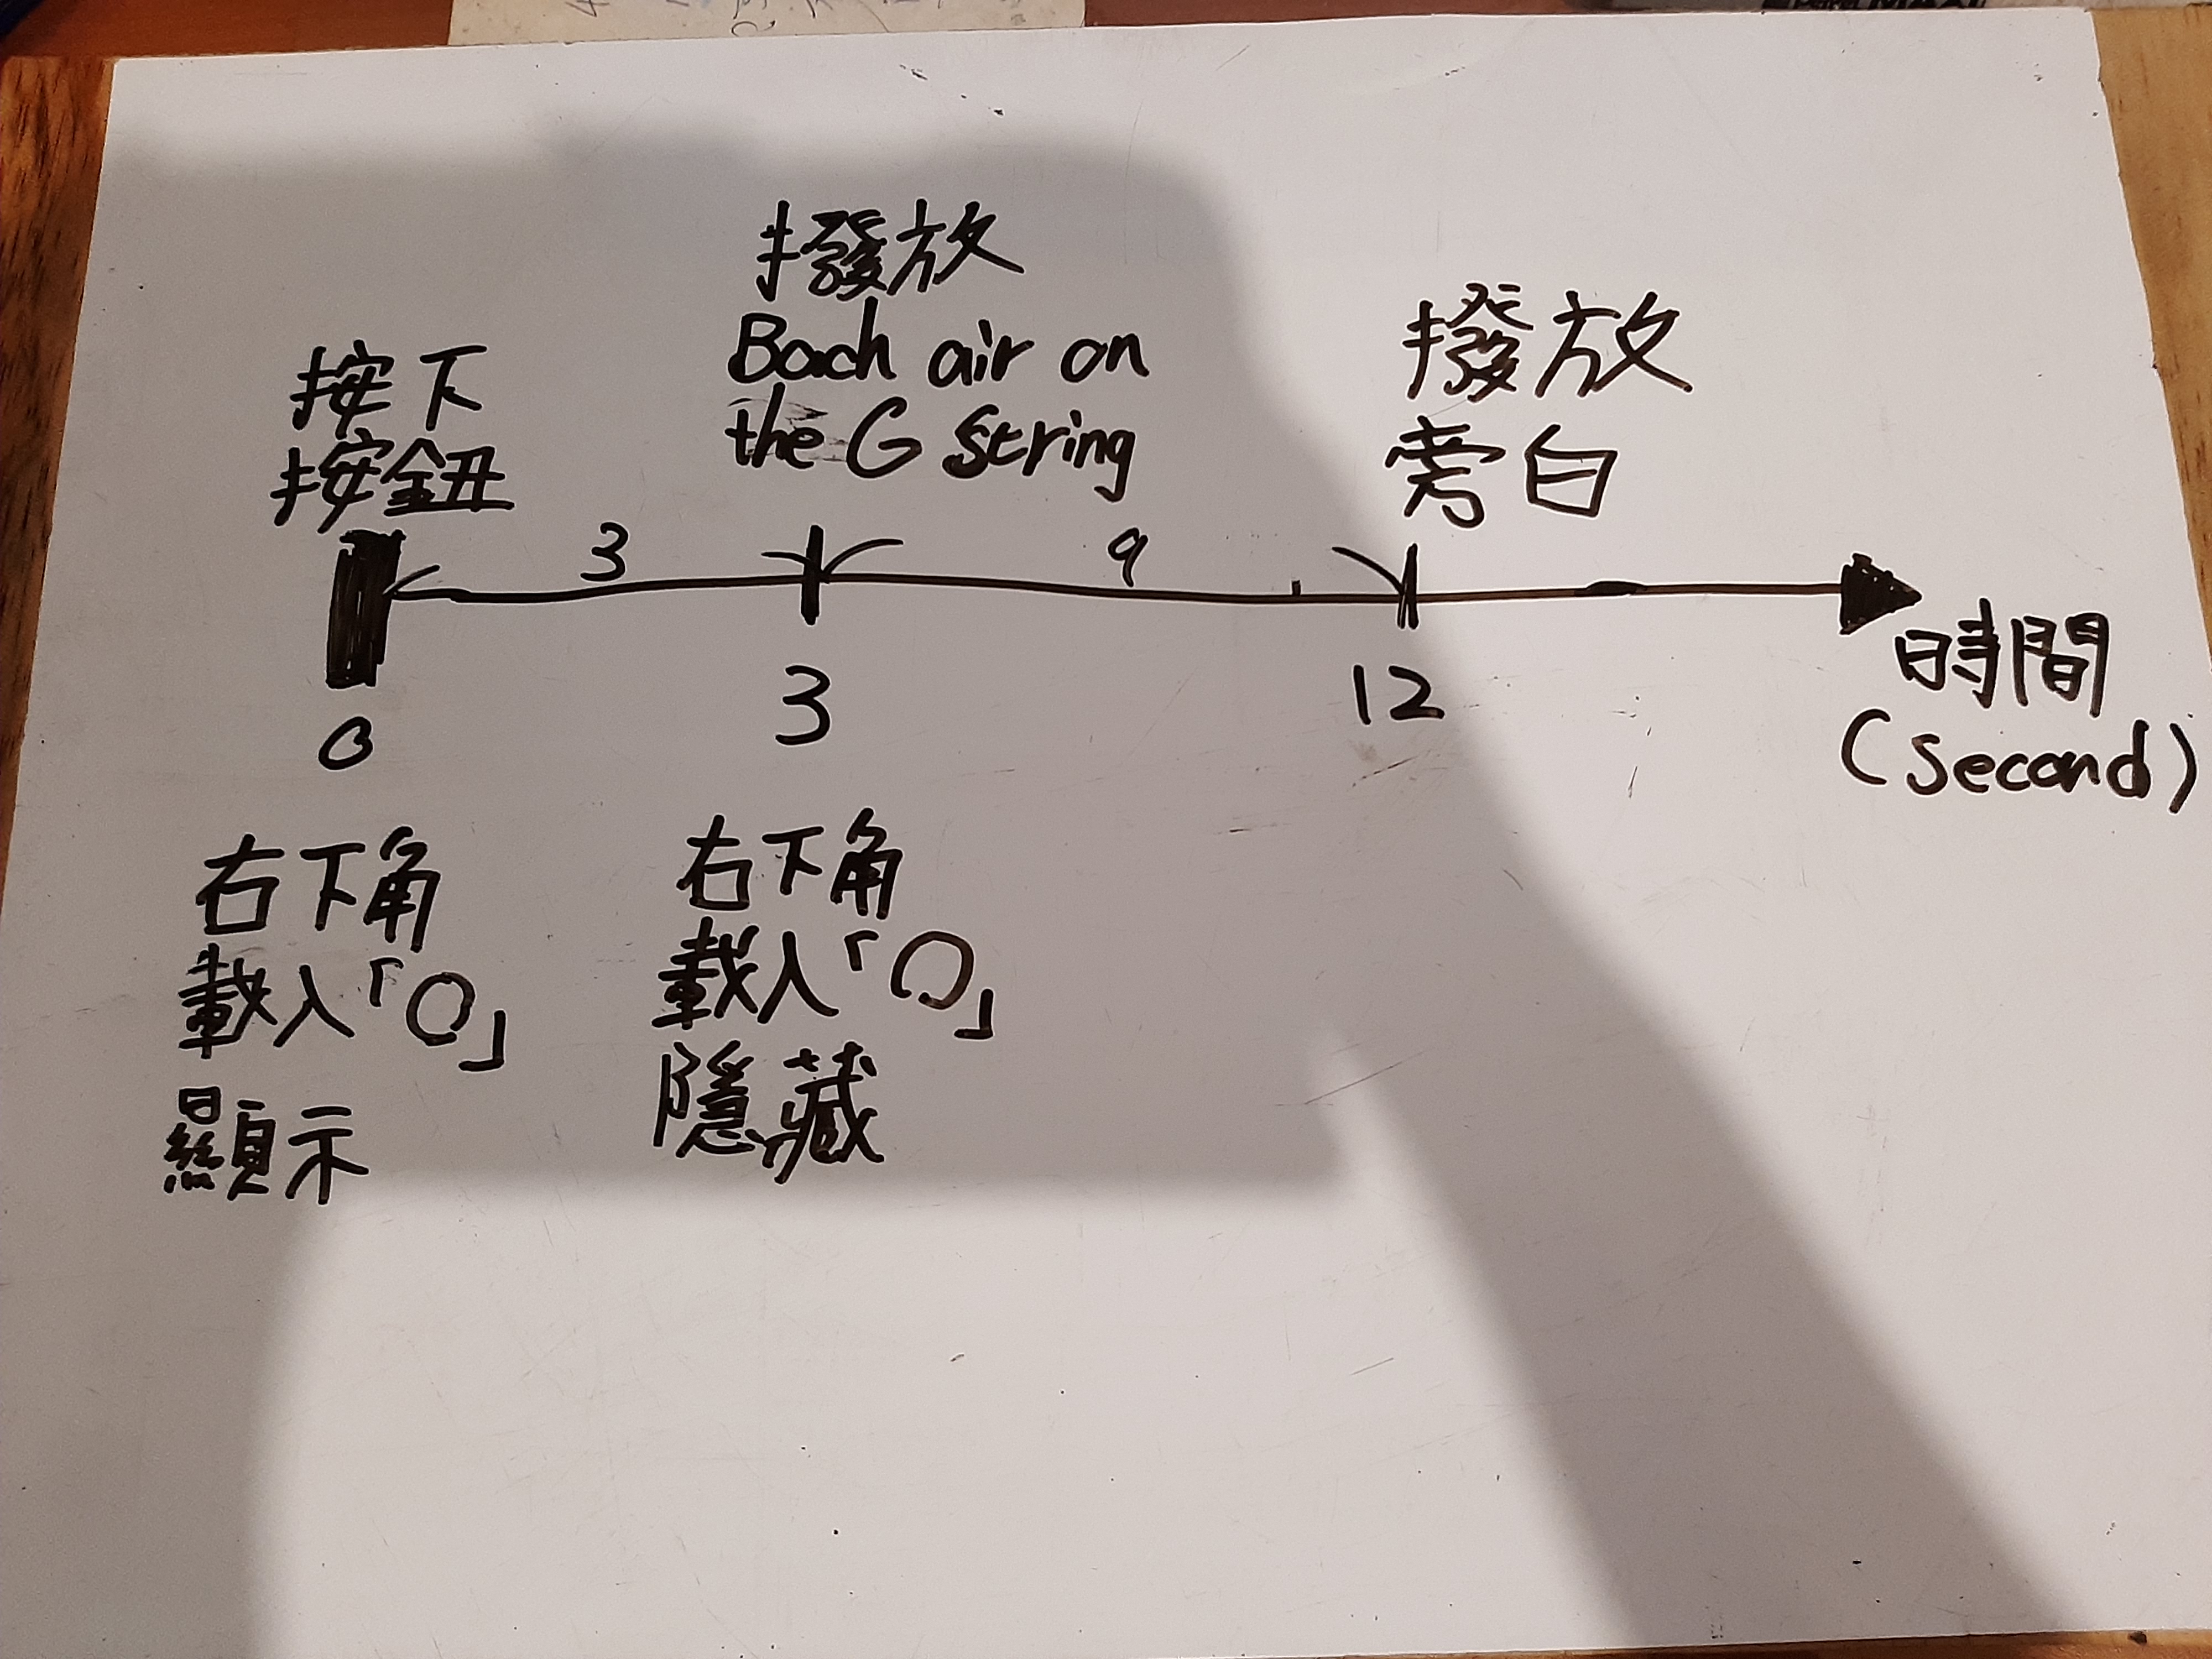 撥放
Bach air on
the G string
按下
按鈕
撥放
旁白
3
9
0
3
12
時間
(second)
右下角
載入「〇」
顯示
右下角
載入「〇」
隱藏